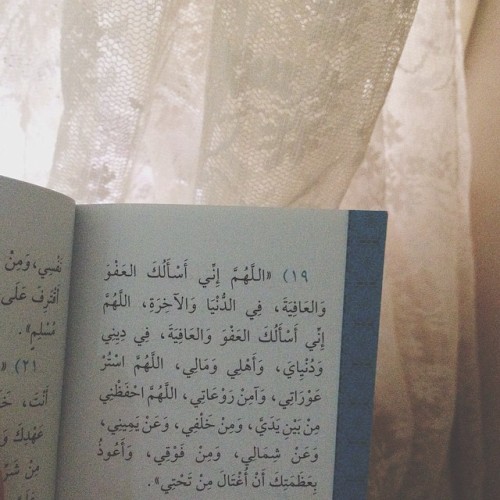 ١٩) «اللَّهُمَّ إِنِّي أَسْأَلُكَ العَفْوَ
وَالعَافِيَةَ، فِي الدُّنْيَا وَالآخِرَةِ، اللَّهُمَّ
إِنِّي أَسْأَلُكَ العَفْوَ وَالعَافِيَةَ، فِي دِينِي
وَدُنْيَايَ، وَأَهْلِي وَمَالِي، اللَّهُمَّ اسْتُرْ
عَوْرَاتِي، وَآمِنْ رَوْعَاتِي، اللَّهُمَّ احْفَظْنِي
مِنْ بَيْنِ يَدَيَّ، وَمِنْ خَلْفِي، وَعَنْ يَمِينِي،
وَعَنْ شِمَالِي، وَمِنْ فَوْقِي، وَأَعُوذُ
بِعَظَمَتِكَ أَنْ أُغْتَالَ مِنْ تَحْتِي».
نَفْسِي، وَمِنْ
أَقْتَرِفَ عَلَى
مُسْلِمٍ».
٢١) «
أَنْتَ، خَ
عَهْدِكَ وَ
مِنْ شَرِّ